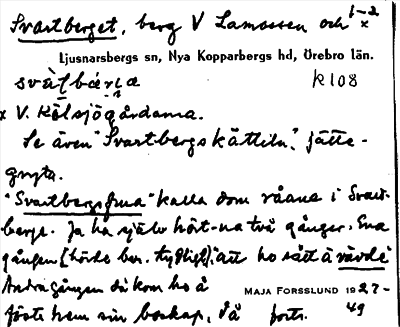 Svartberget, berg V Lamossen och 1-2
x
Ljusnarsbergs sn, Nya Kopparbergs hd, Örebro län.
K108
x V. Kölsjögårdarna.
Se även "Svartbergskättiln", jätte-
gryta.
"Svartbergsfrua" kalla dom råane i Svart-
berge. Ja ha själv hört-na två gånger. Ena
gången (hörde ber. tydligt), "att ho satt å vävde
Andra gången då kom ho å
MAJA FORSSLUND 1927-
49
förte hem sin boskap, då forts.